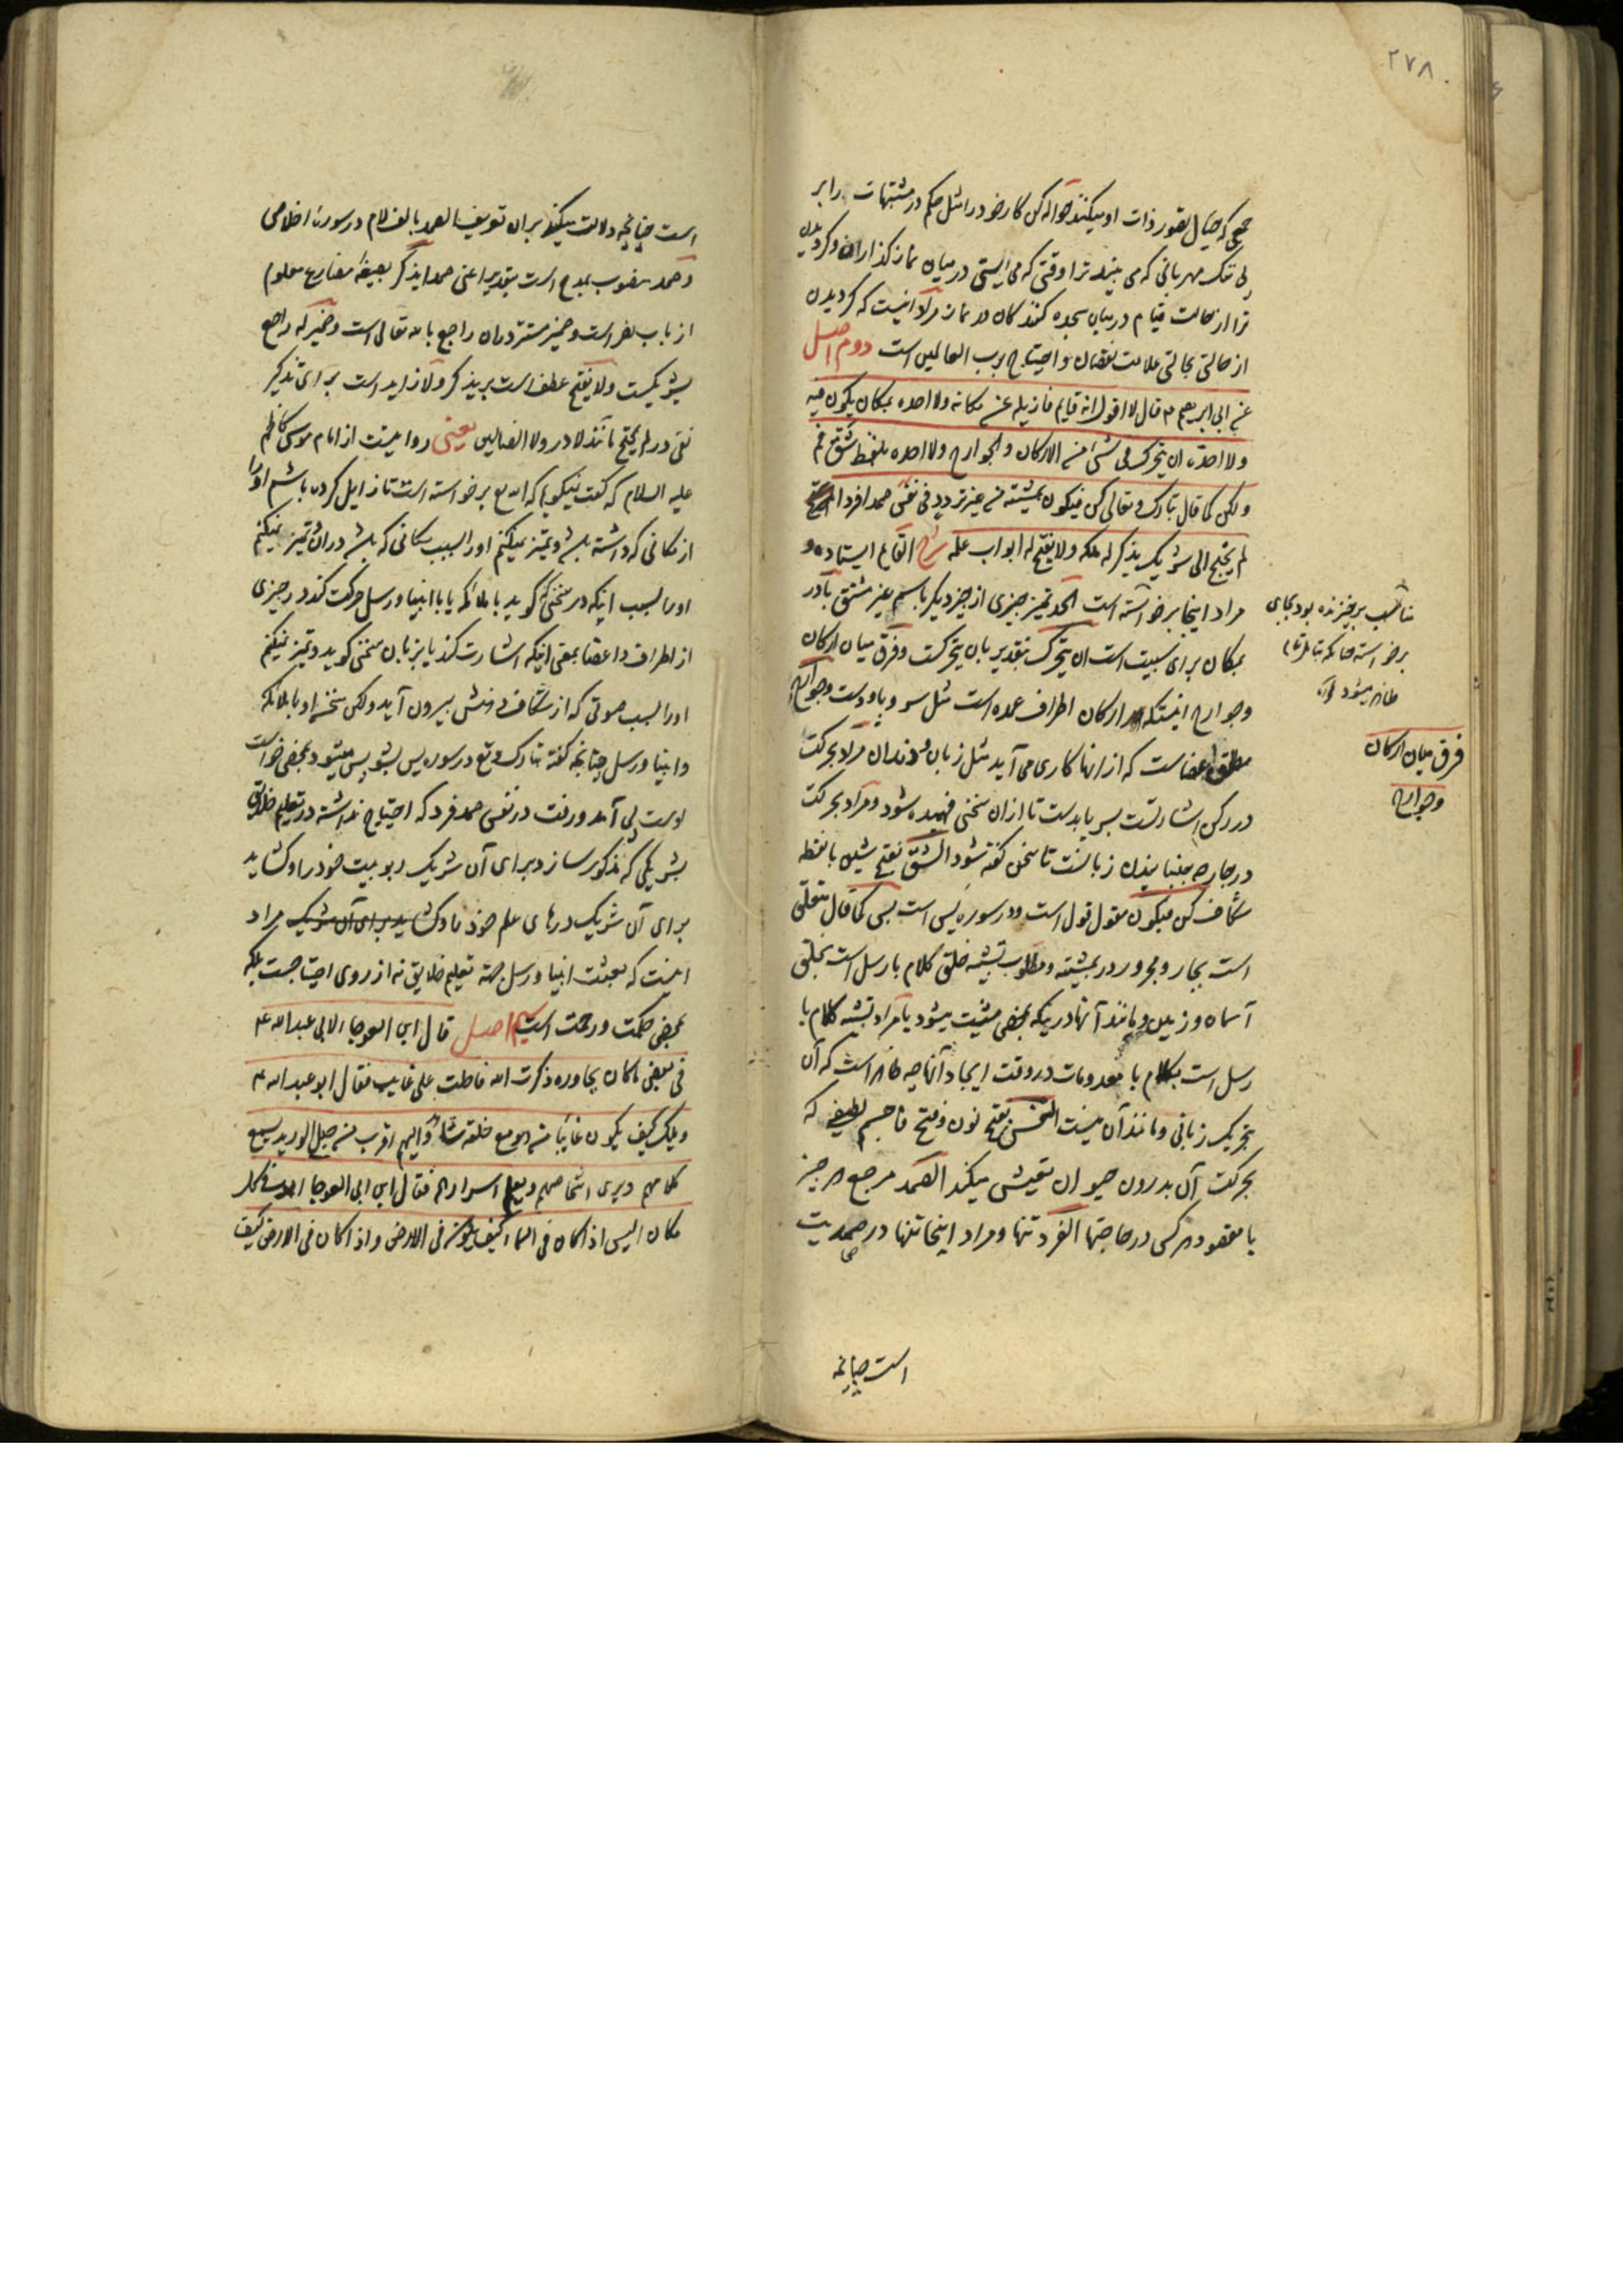 ۲۷۸
جمعی که خیال تصور ذات او میکنند حواله کن کار خود را مثل حکم در مشتبهات را بر
بی شک مهربانی که می بیند ترا وقتی که می ایستی در میان نماز گذاران و گردیدن
ترا از حالت قیام در میان سجده کنندگان در نماز مراد اینست که گردیدن
از حالتی بحالتی علامت نقصان و احتیاج برب العالمین است دوم اصل
عن ابی ابرهیم ع قال لا اقول انه قایم فازیله عن مکانه ولا احده بمکان یکون فیه
ولا احده ان یتحرک فی شئ من الارکان والجوارح ولا احده بلفظ شق فم
ولکن کما قال تبارک وتعالی کن فیکون بمشیته من غیر تردد فی نفس صمدا فردا
لم یحتج الی شریک یذکر له ملکه ولا یفتح له ابواب علمه شرح القایم ایستاده و
مراد اینجا برخواسته است الحد تمیز چیزی از چیز دیگر باسم غیر مشتق با در
بمکان برای سببیت است ان یتحرک بتقدیر بان یتحرکست و فرق میان ارکان
وجوارح اینستکه ارکان اطراف عمده است مثل سر و پا و دست وجوارح
مطلق اعضاست که از انها کاری می آید مثل زبان و دندان مراد بحرکت
در رکن اشارتست بسر یا بدست تا ازان سخنی فهمیده شود و مراد بحرکت
در جارحه جنبانیدن زبانست تا سخن گفته شود الشق بفتح شین با نقطه
شکاف کن فیکون مقول قول است و در سوره یس است پس کما قال متعلق
است بجار و مجرور در بمشیته و مطلوب تشبیه خلق کلام با رسل است بخلق
آسمان و زمین و مانند آنها در اینکه بمحض مشیت میشود یا مراد تشبیه کلام با
رسل است بکلام با معدومات در وقت ایجاد آنها چه ظاهر است که آن
بتحریک زبانی و مانند آن نیست النفس بفتح نون و فتح فا جسم لطیفی که
بحرکت آن بدرون حیوان تعیش میکند الصمد مرجع هر چیز
یا مقصود هر کس در حاجتها الفرد تنها و مراد اینجا تنها در صمدیت
مناسب برخیزنده بود بجای
برخواسته چنانکه بتامل تمام
ظاهر میشود
فرق میان ارکان
وجوارح
است چنانچه
است چنانچه دلالت میکند بران تعریف الصمد بالف لام در سوره اخلاص
و صمد منصوب بمدح است بتقدیر اعنی صمدا یذکر بصیغه مضارع معلوم
از باب نصر است و ضمیر مستتر در ان راجع بالله تعالی است و ضمیر له راجع
بشریکست ولا یفتح عطف است بر یذکر و لا زاید است برای تذکیر
نفی در لم یحتج مانند لا در ولا الضالین یعنی روایتست از امام موسی کاظم
علیه السلام که گفت نمیگویم که الله تع برخواسته است تا زایل کرده باشم او را
از مکانی که داشته باشد و تمیز نمیکنم او را بسبب مکانی که باشد در ان و تمیز نمیکنم
او را بسبب اینکه در سخنی که گوید با ملائکه یا با انبیا و رسل حرکت کند در چیزی
از اطراف و اعضا بمعنی اینکه اشارت کند یا بزبان سخنی گوید و تمیز نمیکنم
او را بسبب صوتی که از شکاف دهنش بیرون آید ولکن سخن او با ملائکه
و انبیا و رسل چنانچه گفته تبارک وتع در سوره یس بشو پس میشود بمحض خواست
اوست بی آمد و رفت در نفس صمد فرد که احتیاج نداشته در تعلیم خلایق
بشریکی که مذکور سازد برای آن شریک ربوبیت خود را و گشاید
برای آن شریک درهای علم خود را و گشاید برای آن شریک مراد
اینست که بعثت انبیا و رسل جهة تعلیم خلایق نه از روی احتیاجست بلکه
بمحض حکمت و رحمت است سیم اصل قال ابن العوجا لابی عبدالله ع
فی بعض ما کان یحاوره ذکرت الله فاحلت علی غایب فقال ابو عبدالله ع
ویلک کیف یکون غایبا من هو مع خلقه شاهد والیهم اقرب من حبل الورید یسمع
کلامهم ویری اشخاصهم ویعلم اسرارهم فقال ابن ابی العوجا اهو فی کل
مکان الیس اذا کان فی السماء کیف یکون فی الارض واذا کان فی الارض کیف